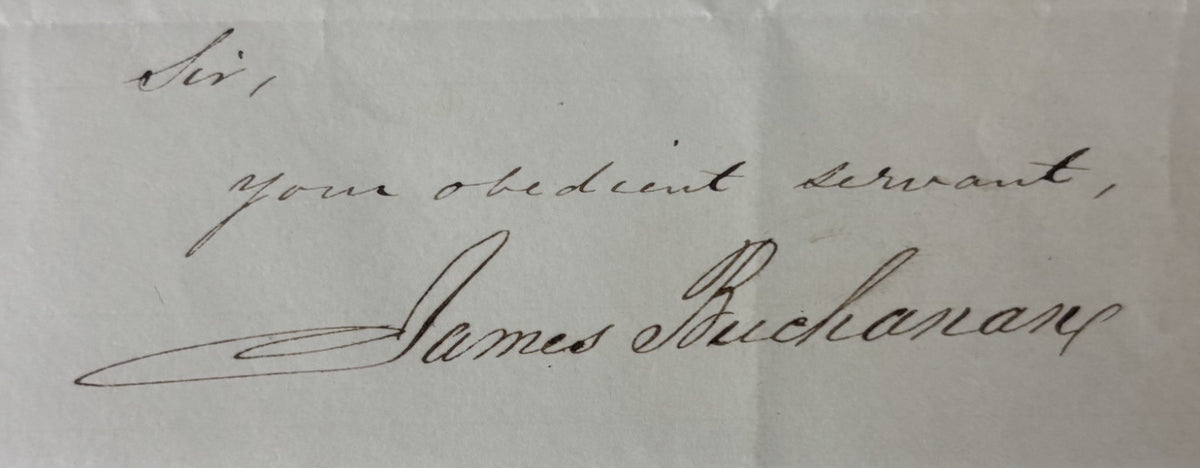 Sir,
your obedient servant,
James Buchanan